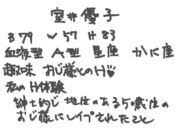 室井優子
B79 W57 H83
血液型 A型 星座 かに座
趣味 おじ様とのH♡
私のH体験
紳士的で 地位のある50歳位の
おじ様にレイプされたこと